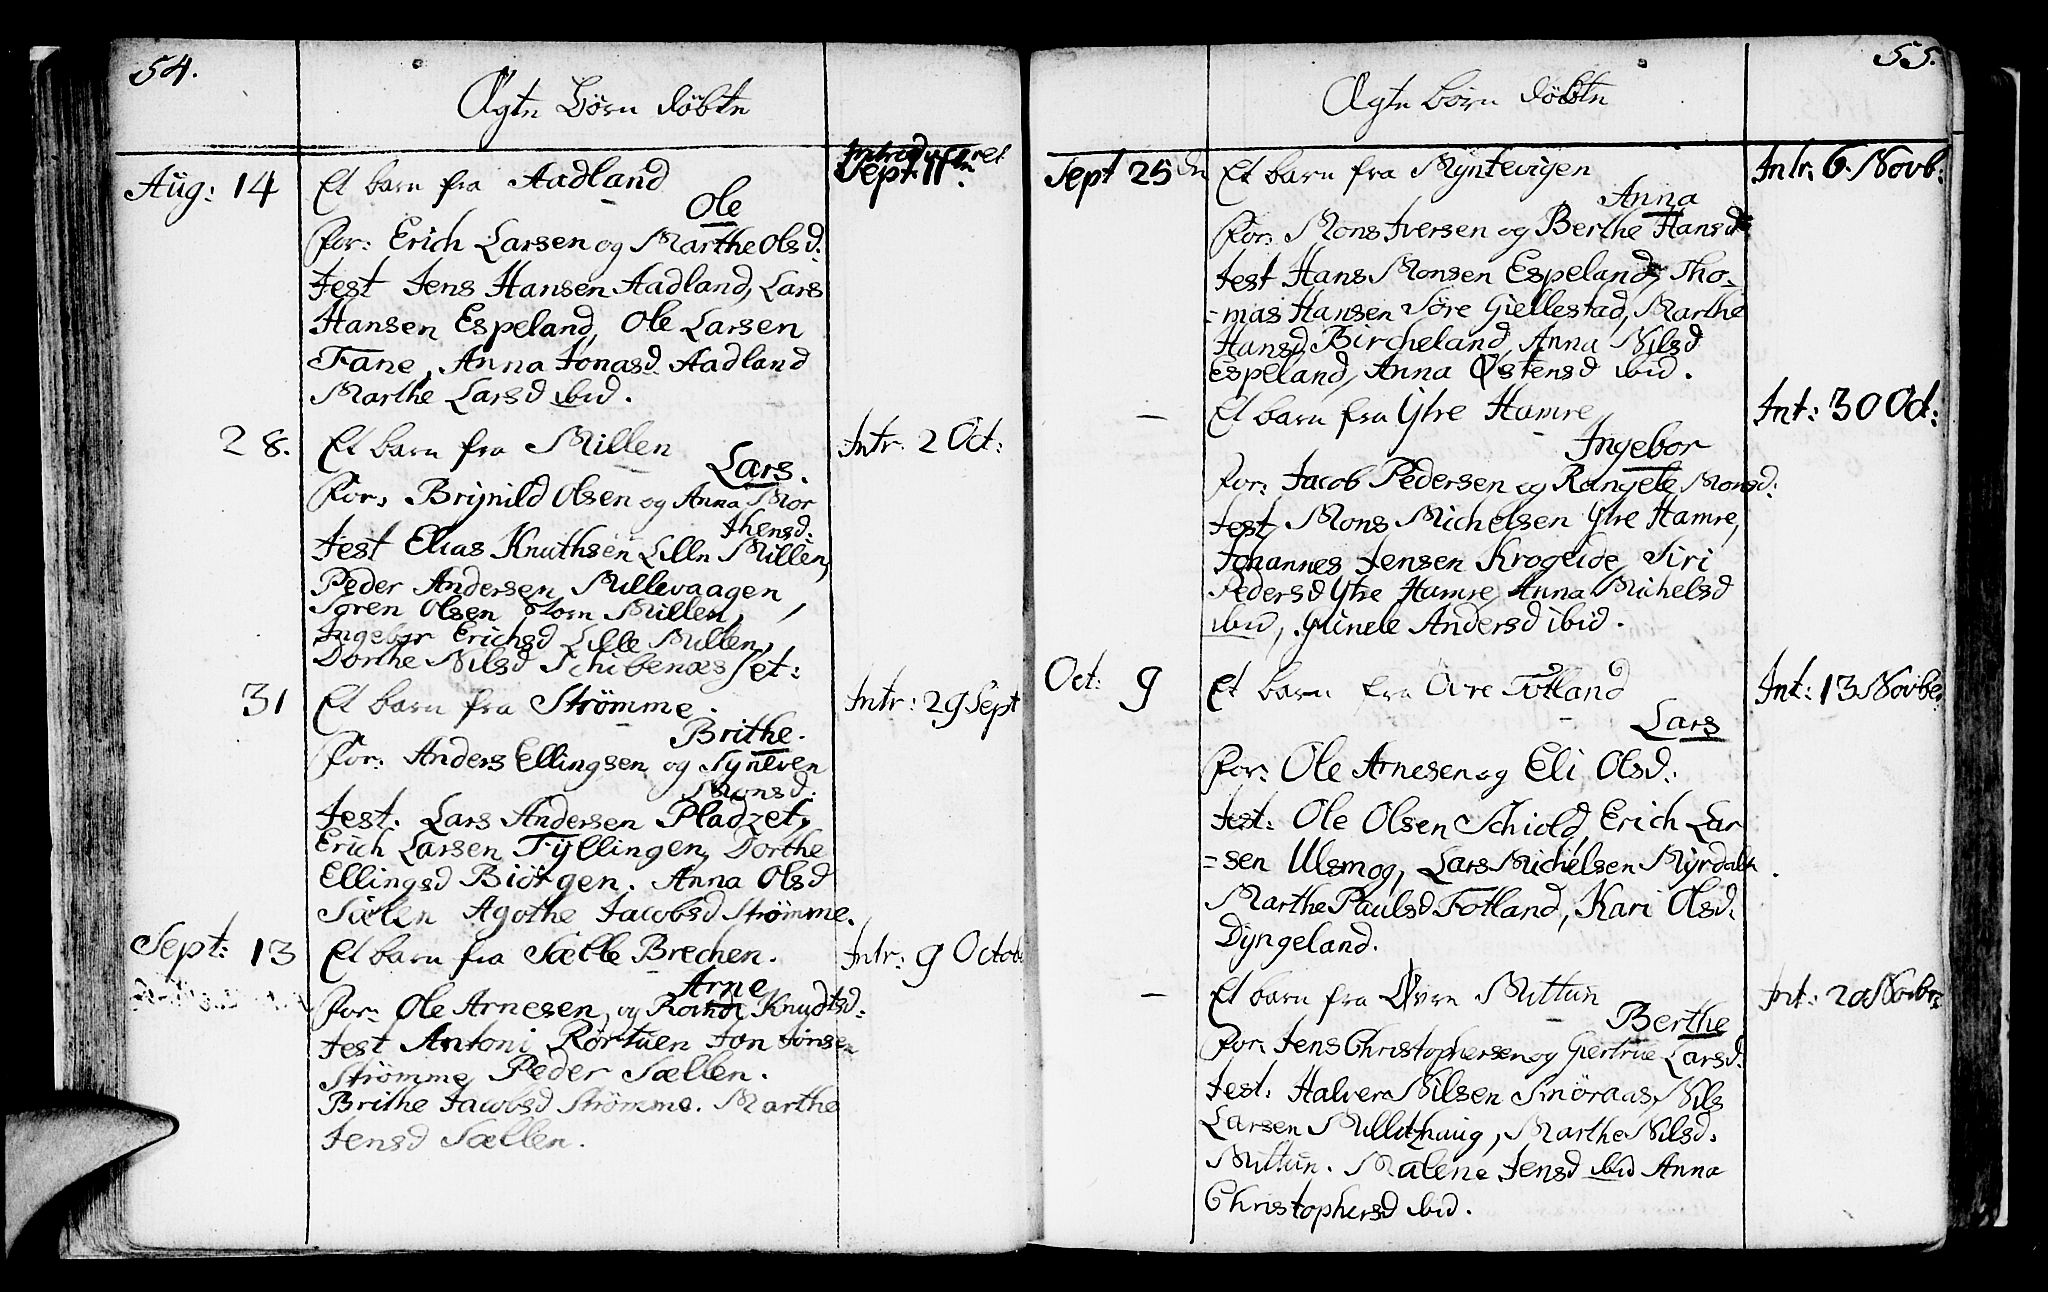 54.
Ægte Börn döbte
Introduceret
Aug: 14
Et barn fra Aadland
Sept. 11
Ole
for: Erich Larsen og Marthe Olsd:
test Jens Hansen Aadland, Lars
Hansen Espeland, Ole Larsen
Fane, Anna Jonasd Aadland
Marthe Larsd ibid.
28.
Et barn fra Millen
Intr. 2 Oct:
Lars.
for: Brynild Olsen og Anna Mor
thensd:
test Elias Knuthsen Lille Millen,
Peder Andersen Millevaagen
Sören Olsen Stom Millen,
Ingebor Erichsd Lille Millen,
Dorthe Nilsd Schibenæsset:
31
Et barn fra Strömme.
Intr: 29 Sept
Brithe.
for: Anders Ellingsen og Syneven
Monsd:
test. Lars Andersen Pladzet,
Erich Larsen Tyllingen, Dorthe
Ellingsd Biörgen. Anna Olsd
Sælen Agothe Jacobsd Strömme.
Sept: 13
Et barn fra Sælle Brechen.
Intr: 9 Octob
Arne
for: Ole Arnesen, og Knudtsd:
test Antoni Rörtuen Jon Jonsen
Strömme, Peder Sællen.
Brithe Jacobsd Strömme. Marthe
Jensd Sællen.
55.
Ægte börn döbte
Sept 25
Et barn fra Myntevigen
Intr: 6. Novb:
Anna
for: Mons Iversen og Berthe Hansd
test Hans Monsen Espeland, Tho-
=mas Hansen Söre Giellestad, Marthe
Hansd Bircheland, Anna Nilsd
Espeland, Anna Østensd ibid.
—
Et barn fra Ytre Hamre
Int: 30 Oct:
Ingebor
for: Jacob Pedersen og Rangele Monsd:
test Mons Michelsen Ytre Hamre,
Johannes Jensen Krogeide, Siri
Pedersd Ytre Hamre, Anna Michelsd
ibid, Gunele Andersd ibid.
Oct: 9
Et barn fra Övre Totland
Int: 13 Novbe
Lars
for: Ole Arnesen og Eli Olsd:
test: Ole Olsen Schiold, Erich Lar
=sen Ulsmog, Lars Michelsen Myrdahl
Marthe Paulsd Totland, Kari Olsd:
Dyngeland.
—
Et barn fra Øvre Mittun
Int: 20 Novbr:
Berthe
for: Jens Christophersen og Giertrue Larsd:
test: Halver Nilsen Smöraas, Nils
Larsen Marthe Nilsd.
Mittun. Malene Jensd ibid Anna
Christophersd ibid.